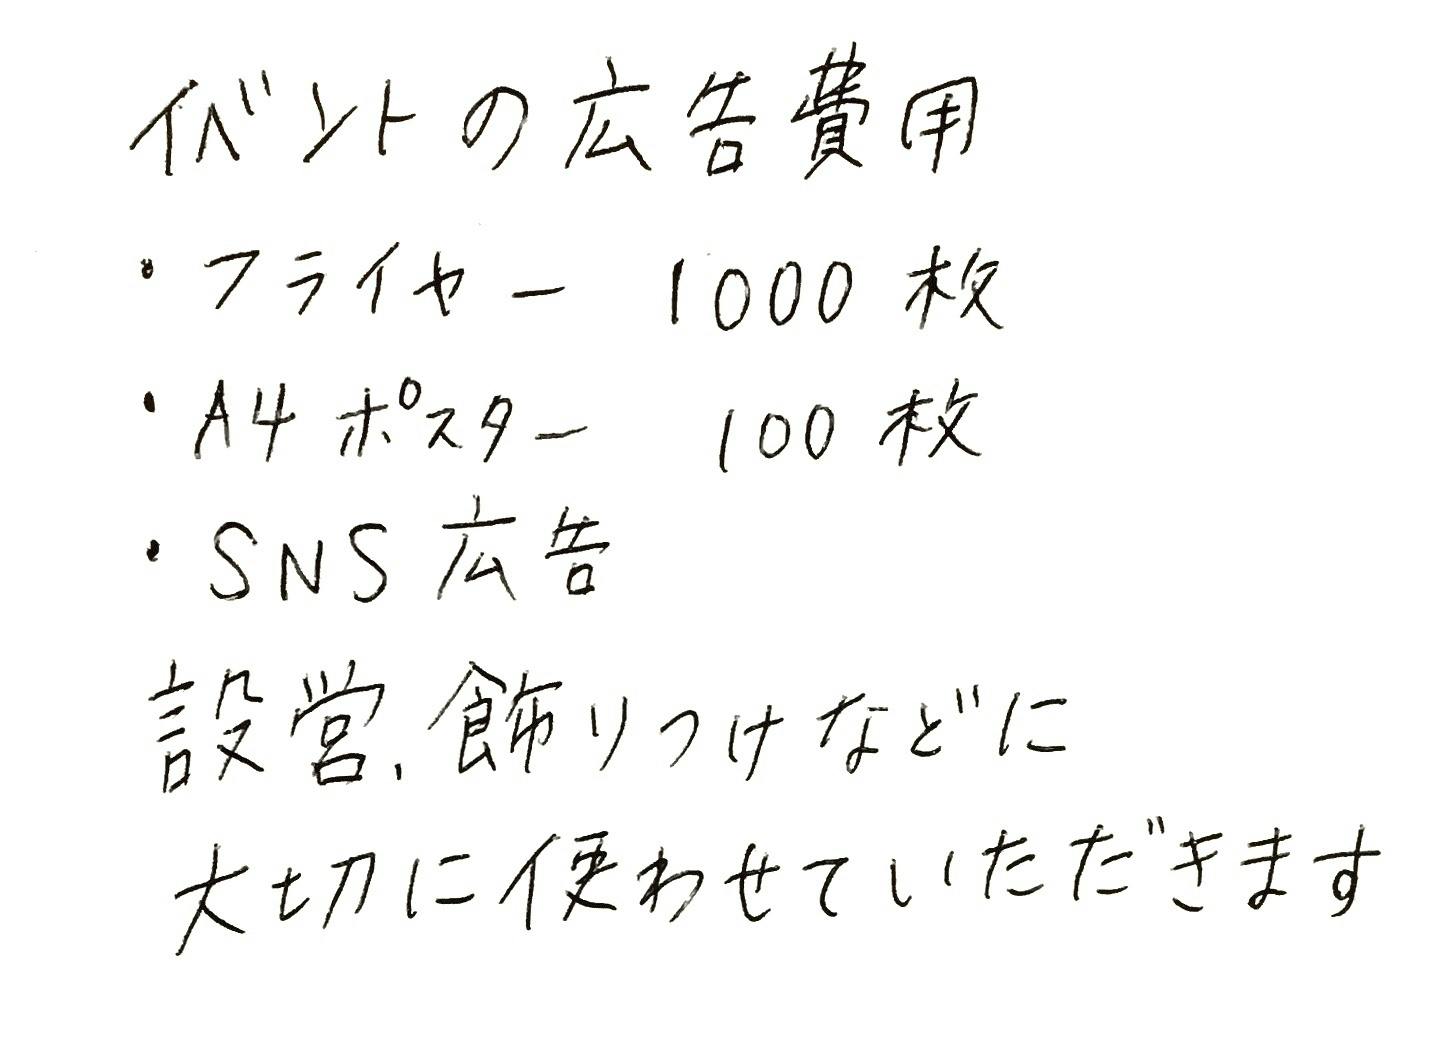 イベントの広告費用
・フライヤー 1000枚
・A4ポスター 100枚
・SNS広告
設営、飾りつけなどに
大切に使わせていただきます